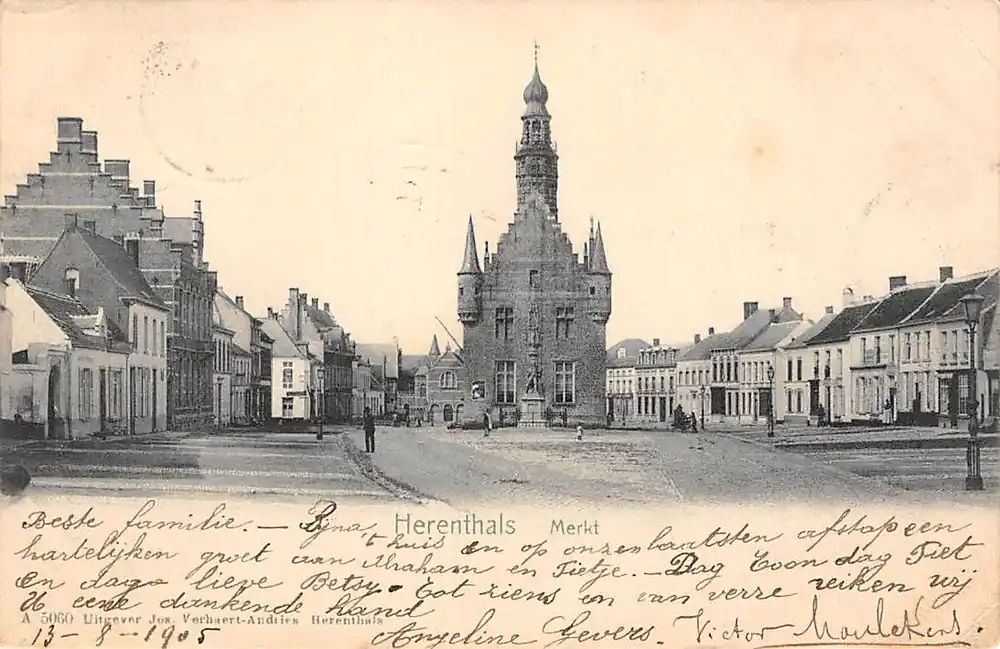 Herenthals Merkt
Beste familie. — Byna 't huis en op onzen laatsten afstap een
hartelijken groet aan Abraham en Fietje. — Dag Toon dag Fiet
en dag lieve Betsy. Tot ziens en van verre reiken wij
U eene dankende hand
A 5060 Uitgever Jos. Verhaert-Andries Herenthals
13-8-1905 Angeline Gevers. Victor Moulckers.